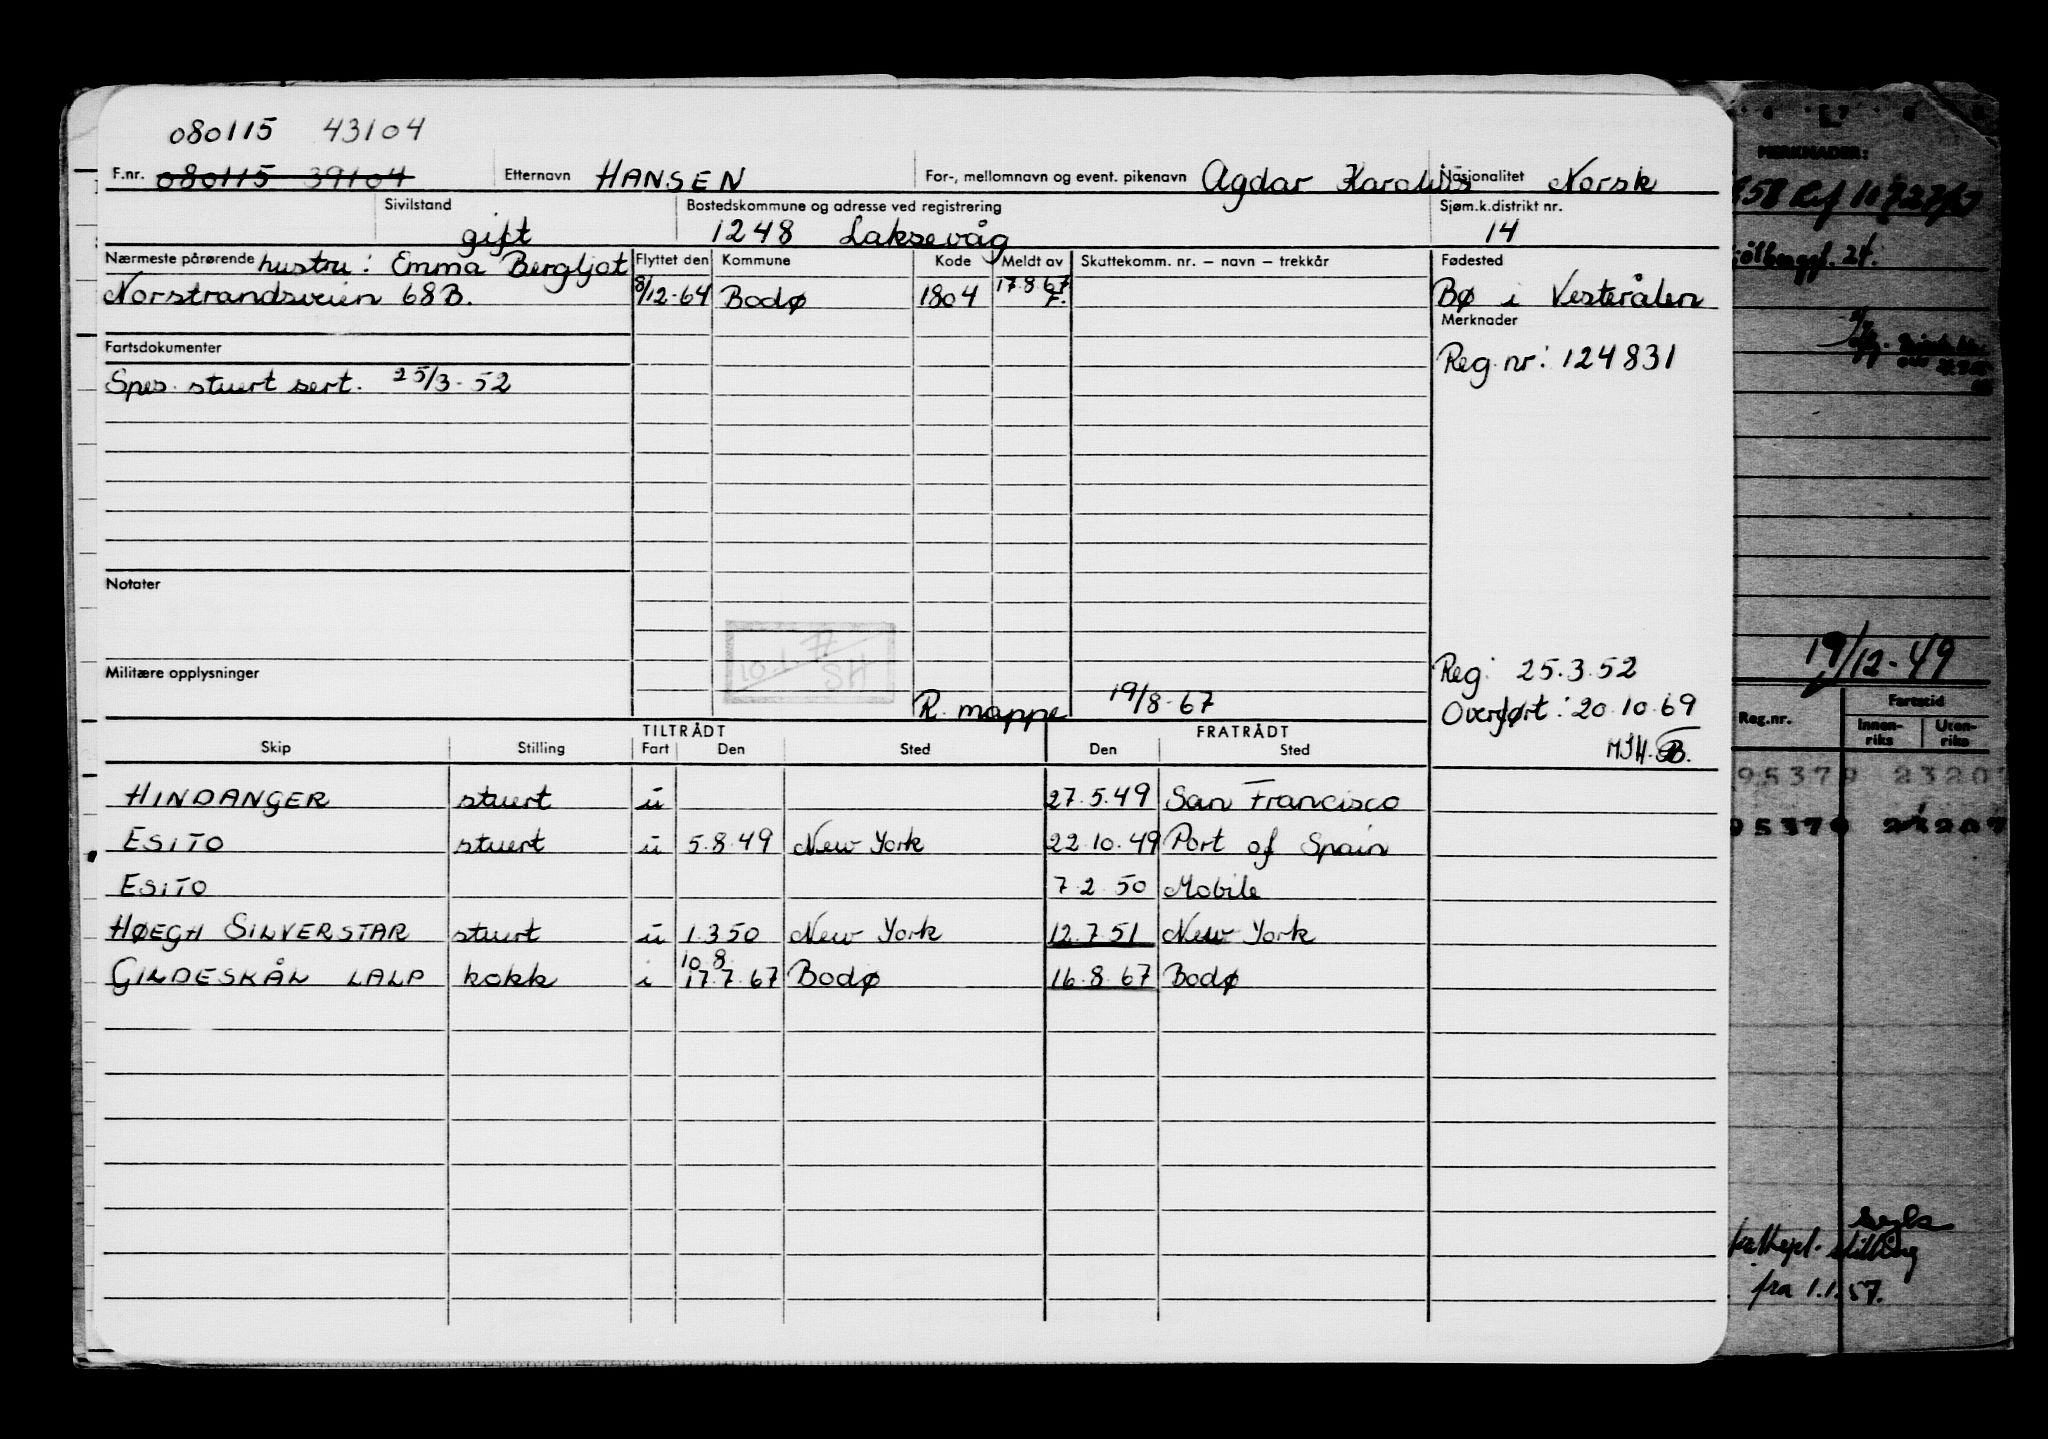 080115 43104
F.nr. 080115 39104 Etternavn HANSEN For-, mellomnavn og event. pikenavn Agdar Karolius Nasjonalitet Norsk
Sivilstand gift Bostedskommune og adresse ved registrering 1248 Laksevåg Sjøm.k.distrikt nr. 14
Nærmeste pårørende hustru: Emma Bergljot Flyttet den Kommune Kode Meldt av Skattekomm. nr. – navn – trekkår Fødested
Norstrandsveien 68B. 8/12-64 Bodø 1804 17.8.67 F. Bø i Vesterålen
Merknader
Fartsdokumenter Reg.nr: 124831
Spes. stuert sert. 25/3-52
Notater
10.1.77 SH
Militære opplysninger Reg: 25.3.52
R. mappe 19/8-67 Overført: 20.10.69
TILTRÅDT FRATRÅDT
Skip Stilling Fart Den Sted Den Sted
HINDANGER stuert u 27.5.49 San Francisco
ESITO stuert u 5.8.49 New York 22.10.49 Port of Spain
ESITO 7.2.50 Mobile
HØEGH SILVERSTAR stuert u 1.3.50 New York 12.7.51 New York
10.8
GILDESKÅL LALP kokk i 17.7.67 Bodø 16.8.67 Bodø
MERKNADER:
19/12-49
Reg.nr. Fartstid
Innen-riks Uten-riks
95379 23207
95379 23207
stilling
fra 1.1.57.